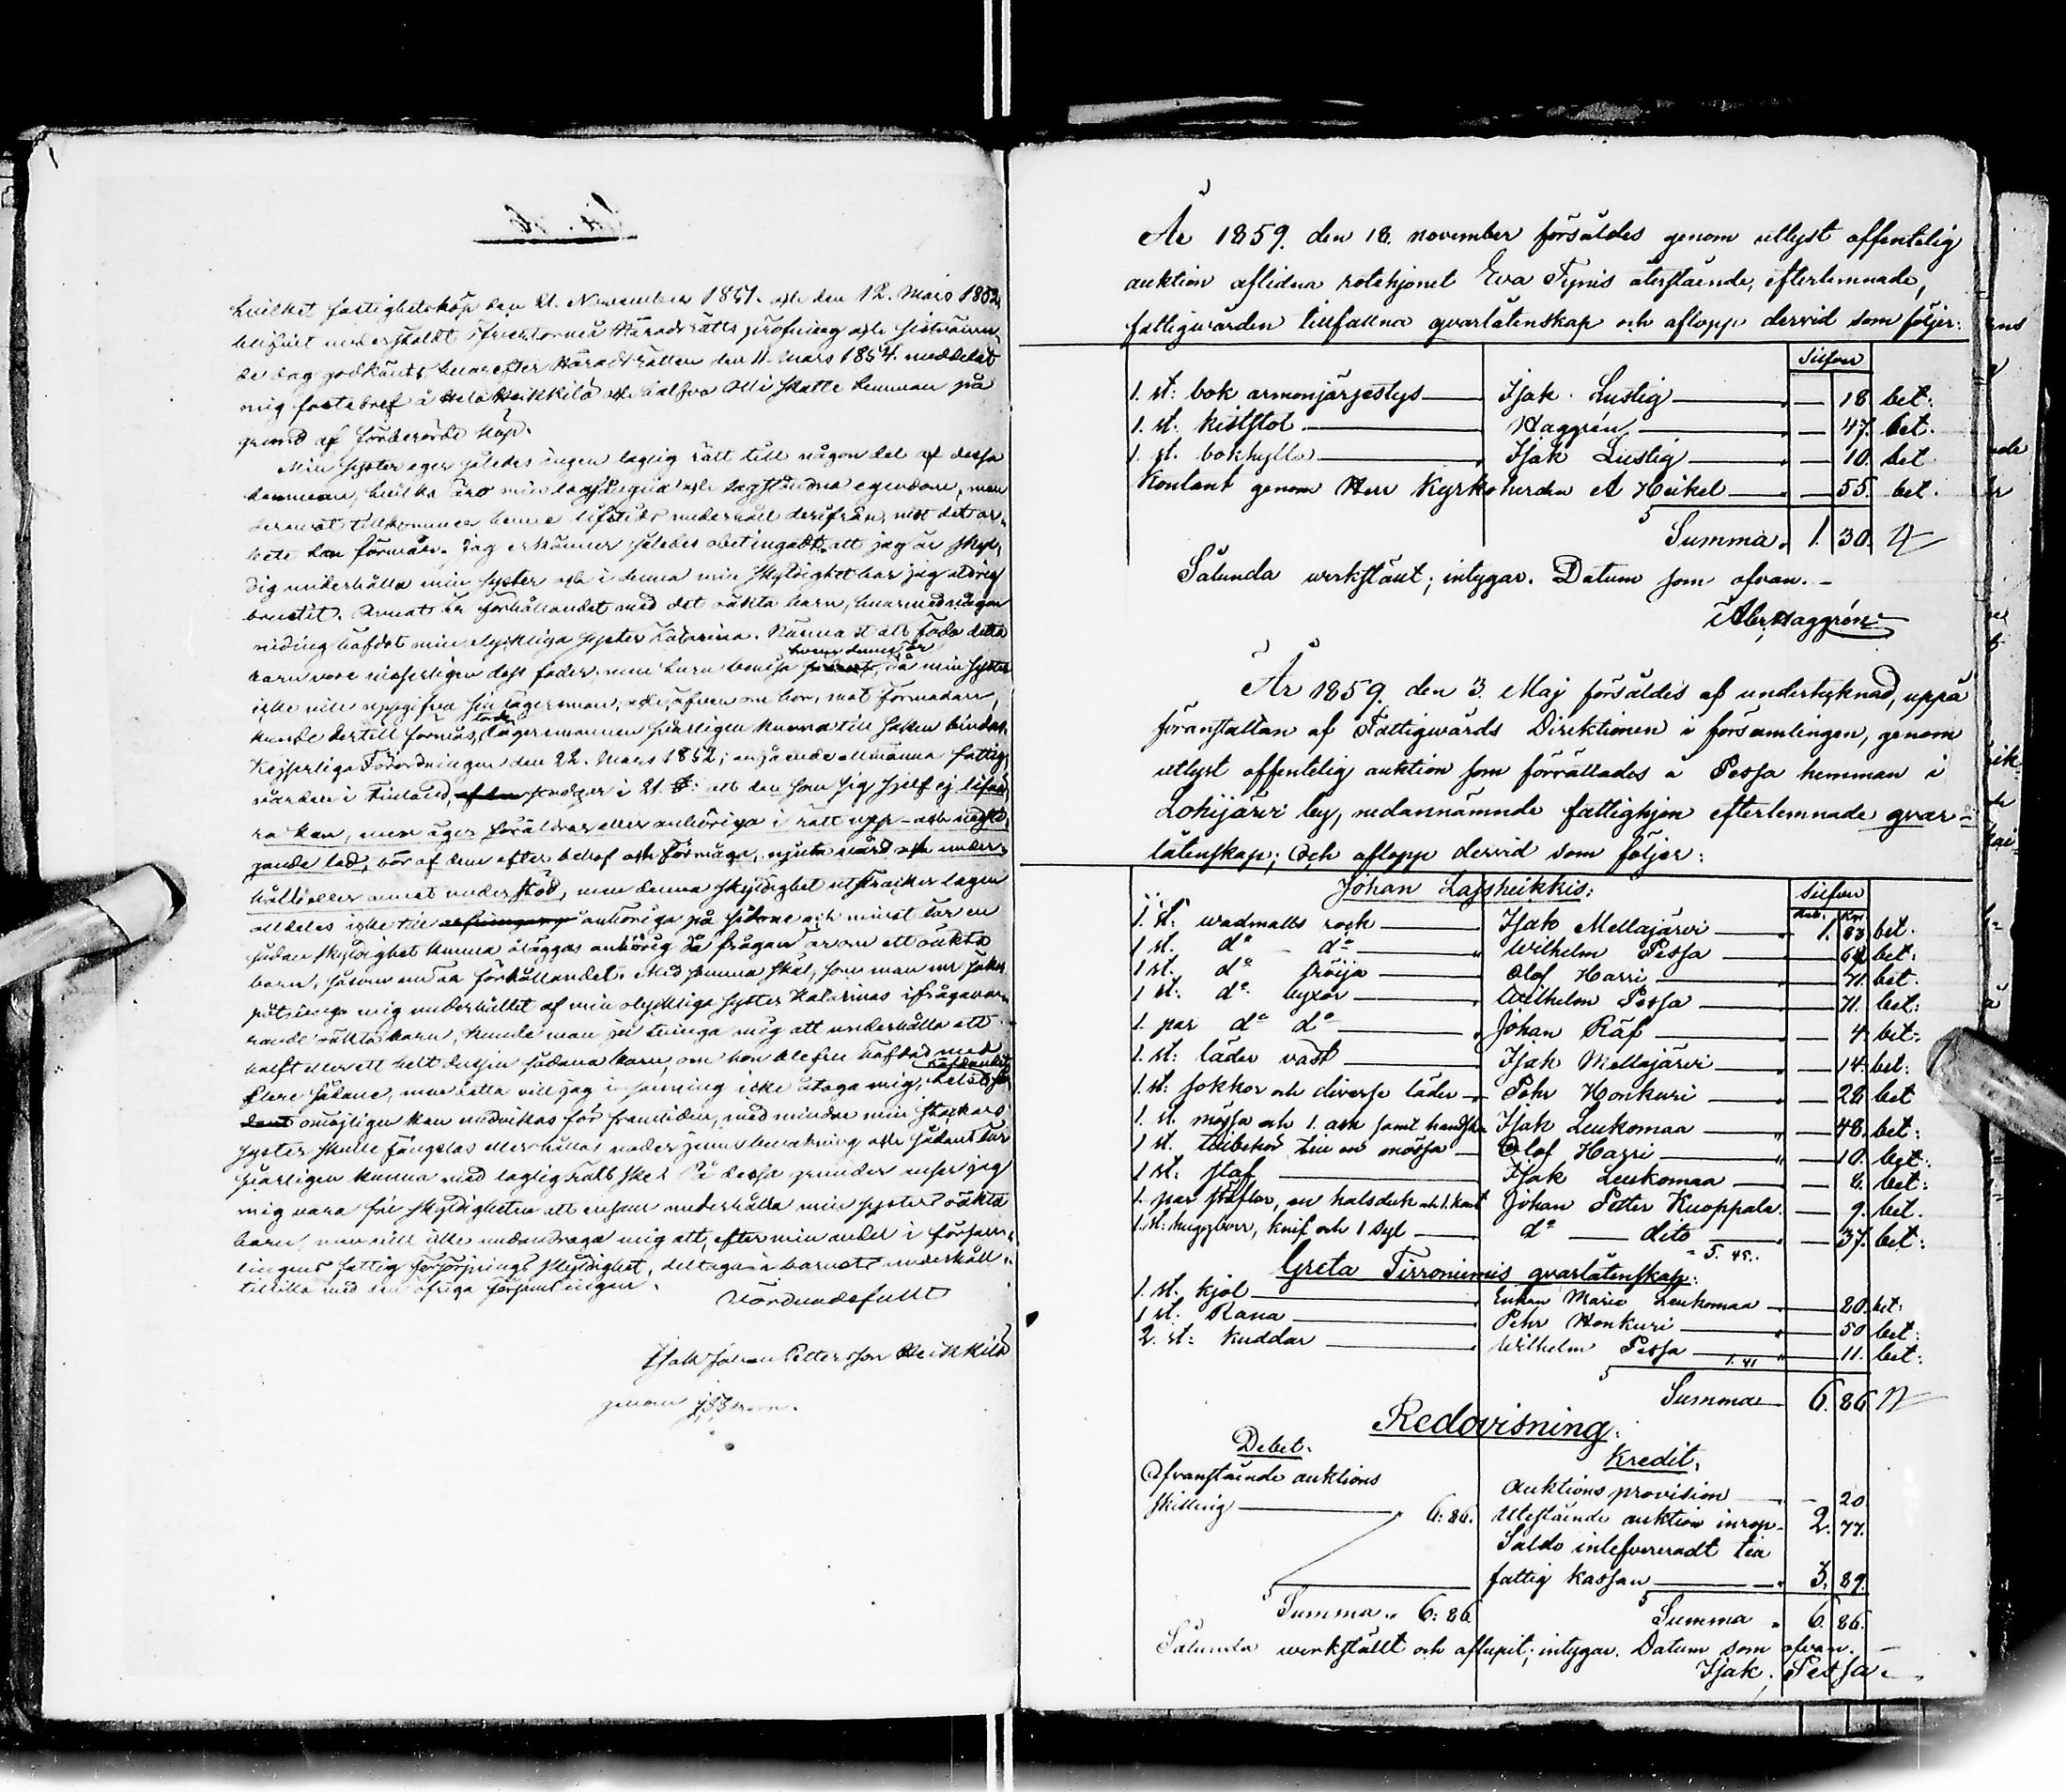 hvilket fastighetsköp den 21. November 1851. och den 12. Mars 1852,
blifvit underställt Härads Rätts pröfning och sistnämn-
de dag godkänts, hvarefter Häradsrätten den 11 Mars 1854. meddelat
mig fastebref å hela Heikkilä och halfva Olli skatte hemman på
grund af förberörde köp.
Min syster eger således ingen laglig rätt till någon del af dessa
hemman, hvilka äro min egendom, men
deremot tillkommer henne lifstids underhåll derifrån, mot det ar-
bete hon förmår. Jag erkänner således obetingadt, att jag är skyl-
dig underhålla min syster och i denna min skyldighet har jag aldrig
brustit. Annat är förhållandet med det oäkta barn, hvarmed någon
niding häfdat min olyckliga syster Katarina. att föda detta
barn vore dess fader, men hvem denne är då min syster
icke vill uppgifva sin lägersman, och, äfven om hon, mot förmodan,
kunde dertill förmås, torde lägersmannen svårligen kunna till saken bindas.
Kejserliga Förordningen den 22. Mars 1852; angående allmänna fattig
vården i Finland, stadgar i 21. §: att den som sig sjelf ej lifnä
ra kan, men äger föräldrar eller anhöriga i rätt upp- och nedsti-
gande led, bör af dem efter behof och förmåga, njuta vård och under-
håll eller annat understöd, men denna skyldighet utsträcker lagen
alldeles icke till anhöriga på sidorne och minst lär en
sådan skyldighet kunna åläggas anhörig då frågan är om ett oäkta
barn, såsom nu är förhållandet. Med samma skäl, som man nu söker
påtvinga mig underhållet af min olyckliga syster Katarinas ifrågava-
rande oäkta barn, kunde man ju tvinga mig att underhålla ett
halft eller ett helt dussin sådana barn, om hon blefve häfdad med
flere sådane, men detta vill jag i sanning icke åtaga mig, helst
omöjligen kan undvikas för framtiden, med mindre min stackars
syster skulle fängslas eller hållas under jemn bevakning och sådant lär
svårligen kunna med laglig rätt ske. På dessa grunder anser jag
mig vara fri skyldigheten att ensam underhålla min systers oäkta
barn, men vill icke undandraga mig att, efter min andel i församl-
lingens fattig försörjnings skyldighet, deltaga i barnets underhåll
tillika med den öfriga församlingen.
Vördnadsfullt
Isak Johan Pettersson Heikkilä
genom
År 1859. den 18. november försåldes genom utlyst offentelig
auktion aflidna rotehjonet Eva Tynis återstående, efterlemnade,
fattigvården tillfallna qvarlåtenskap och aflopp dervid som följer:
Silfver
1. st: bok armonjärjestys Isak Lustig — 18 bet:
1. st. kiststol Haggrén — 47. bet.
1. st. bokhylla Isak Lustig — 10. bet
Kontant genom Herr Kyrkoherden A Heikel — 55. bet.
Summa. 1. 30.
Sålunda werkstäldt; intygar. Datum som ofvan. –
Abr. Haggrén
År 1859. den 3. Maj försåldes af undertecknad, uppå
föranstaltan af Fattigwårds Direktionen i församlingen, genom
utlyst offentelig auktion som förrättades å Pessa hemman i
Lohijärvi by, nedannämnde fattighjon efterlemnade qvar-
låtenskap; Och aflopp dervid som följer:
Johan Lassheikkis: Silfver
Rub. Kop.
1. st: wadmalls rock Isak Mellajärvi 1. 83 bet.
1 st. do do Wilhelm Pessa — 62 bet:
1 st. do tröija Olof Harri — 71. bet.
1 st. do byxor Wilhelm Pessa — 71. bet:
1. par do do Johan Räf — 4. bet:
1. st: läder väst Isak Mellajärvi — 14. bet:
1. st: sokkor och diverse läder Pehr Honkuri — 26 bet
1. st. mössa och 1. ask samt handskar Isak Leukomaa — 48. bet:
1 st. till en mössa Olof Harri — 10. bet:
1 st: staf Isak Leukomaa — 6. bet:
1. par stöflar, en halsduk och 1. Johan Petter Knoppala — 9. bet.
1. st: huggborr, knif och 1 syl do dito — 37. bet:
5. 45.
Greta Tirroniemis qvarlåtenskap:
1. st. kjol Enkan Maria Leukomaa — 80. bet:
1 st. Rana Pehr Honkuri — 50 bet:
2. st: kuddar Wilhelm Pessa — 11. bet:
1. 41
Summa 6. 86
Redovisning:
Debet. Kredit.
Ofvanstående auktions Auktions provision — 20.
skilling 6: 86. Utestående auktion inrop 2. 77.
Saldo inlefvereradt till
fattig kassan 3. 89.
Summa.. 6: 86 Summa 6. 86.
Sålunda werkställt och aflupit; intygar. Datum som ofvan. –
Isak Pessa.